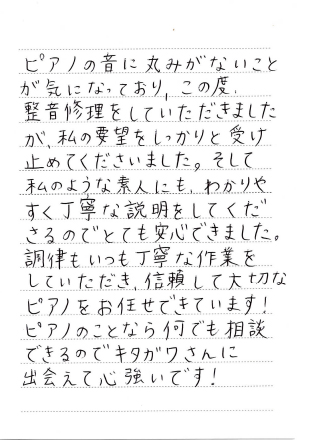 ピアノの音に丸みがないこと
が気になっており、この度、
整音修理をしていただきました
が、私の要望をしっかりと受け
止めてくださいました。そして
私のような素人にも、わかりや
すく丁寧な説明をしてくだ
さるのでとても安心できました。
調律もいつも丁寧な作業を
していただき、信頼して大切な
ピアノをお任せできています！
ピアノのことなら何でも相談
できるのでキタガワさんに
出会えて心強いです！